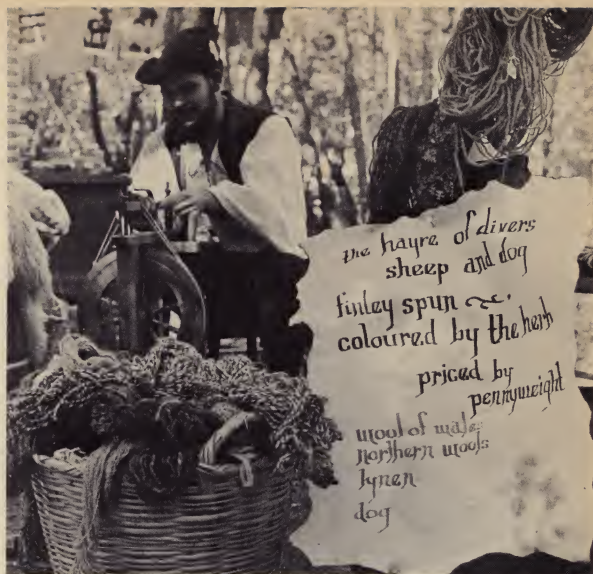 the hayre of divers
sheep and dog
finley spun &.
coloured by the herb
priced by
pennyweight
wool of wales
northern wools
lynen
dog